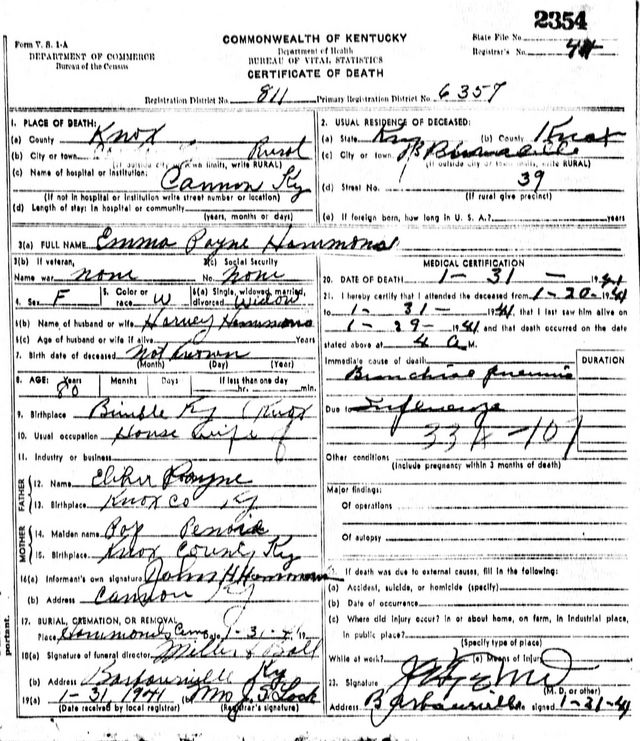 2354
Form V. S. 1-A
DEPARTMENT OF COMMERCE
Bureau of the Census
COMMONWEALTH OF KENTUCKY
Department of Health
BUREAU OF VITAL STATISTICS
CERTIFICATE OF DEATH
State File No.
Registrar's No. 44
Registration District No. 811 Primary Registration District No. 6357
1. PLACE OF DEATH:
(a) County Knox
(b) City or town Rural
(If outside city or town limits, write RURAL)
(c) Name of hospital or institution:
Cannon Ky
(If not in hospital or institution write street number or location)
(d) Length of stay: In hospital or community
(years, months or days)
2. USUAL RESIDENCE OF DECEASED:
(a) State Ky (b) County Knox
(c) City or town Barbourville
(If outside city or town limits, write RURAL)
(d) Street No. 39
(If rural give precinct)
(e) If foreign born, how long in U. S. A.? years
3(a) FULL NAME Emma Payne Hammons
3(b) If veteran,
Name war none
3(c) Social Security
No. None
4. Sex F
5. Color or
race W
6(a) Single, widowed, married,
divorced Widow
6(b) Name of husband or wife Harvey Hammons
6(c) Age of husband or wife if alive Years
7. Birth date of deceased Not known
(Month) (Day) (Year)
8. AGE: Years Months Days If less than one day
80 hr. min.
9. Birthplace Bimble Ky (Knox
10. Usual occupation House wife
11. Industry or business
FATHER
12. Name Payne
13. Birthplace Knox Co Ky
MOTHER
14. Maiden name
15. Birthplace Knox County Ky
16(a) Informant's own signature John H Hammons
(b) Address Cannon Ky
17. BURIAL, CREMATION, OR REMOVAL
Place Hammons Cem Date 1-31-41 19
18(a) Signature of funeral director Miller & Ball
(b) Address Barbourville Ky
19(a) 1-31 1941 Mrs J. S. Lock
(Date received by local registrar) (Registrar's signature)
MEDICAL CERTIFICATION
20. DATE OF DEATH 1-31- 1941
21. I hereby certify that I attended the deceased from 1-20-1941
to 1-31- 1941 that I last saw him alive on
1-29- 1941 and that death occurred on the date
stated above at 4 A M.
Immediate cause of death
DURATION
Bronchial pneumonia
Due to Influenza
33A-107
Other conditions
(Include pregnancy within 3 months of death)
Major findings:
Of operations
Of autopsy
22. If death was due to external causes, fill in the following:
(a) Accident, suicide, or homicide (specify)
(b) Date of occurrence
(c) Where did injury occur? in or about home, on farm, in industrial place,
in public place?
(Specify type of place)
While at work? (e) Means of injury
23. Signature
(M. D. or other)
Address Barbourville signed 1-31-41
portant.